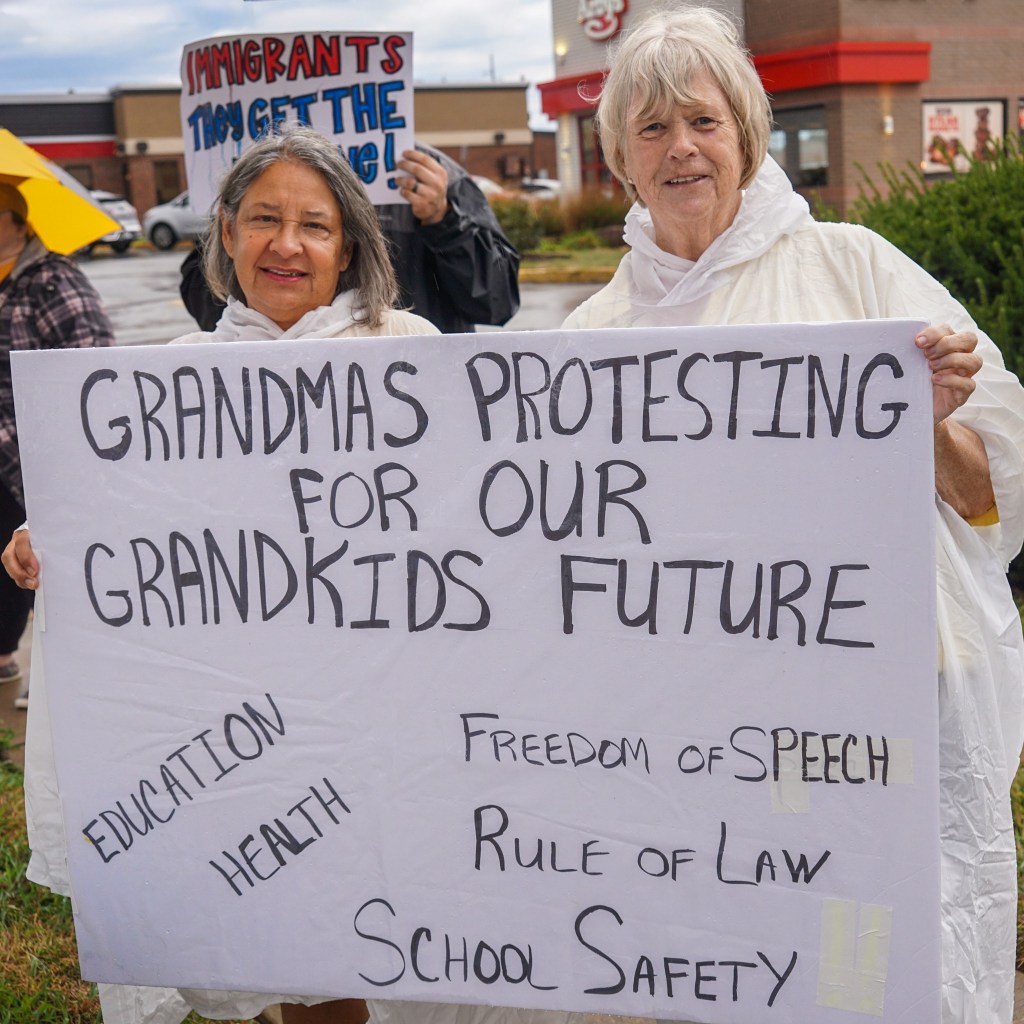 IMMIGRANTS
THEY GET THE
!
Arby's
GRANDMAS PROTESTING
FOR OUR
GRANDKIDS FUTURE
EDUCATION
HEALTH
FREEDOM OF SPEECH
RULE OF LAW
SCHOOL SAFETY